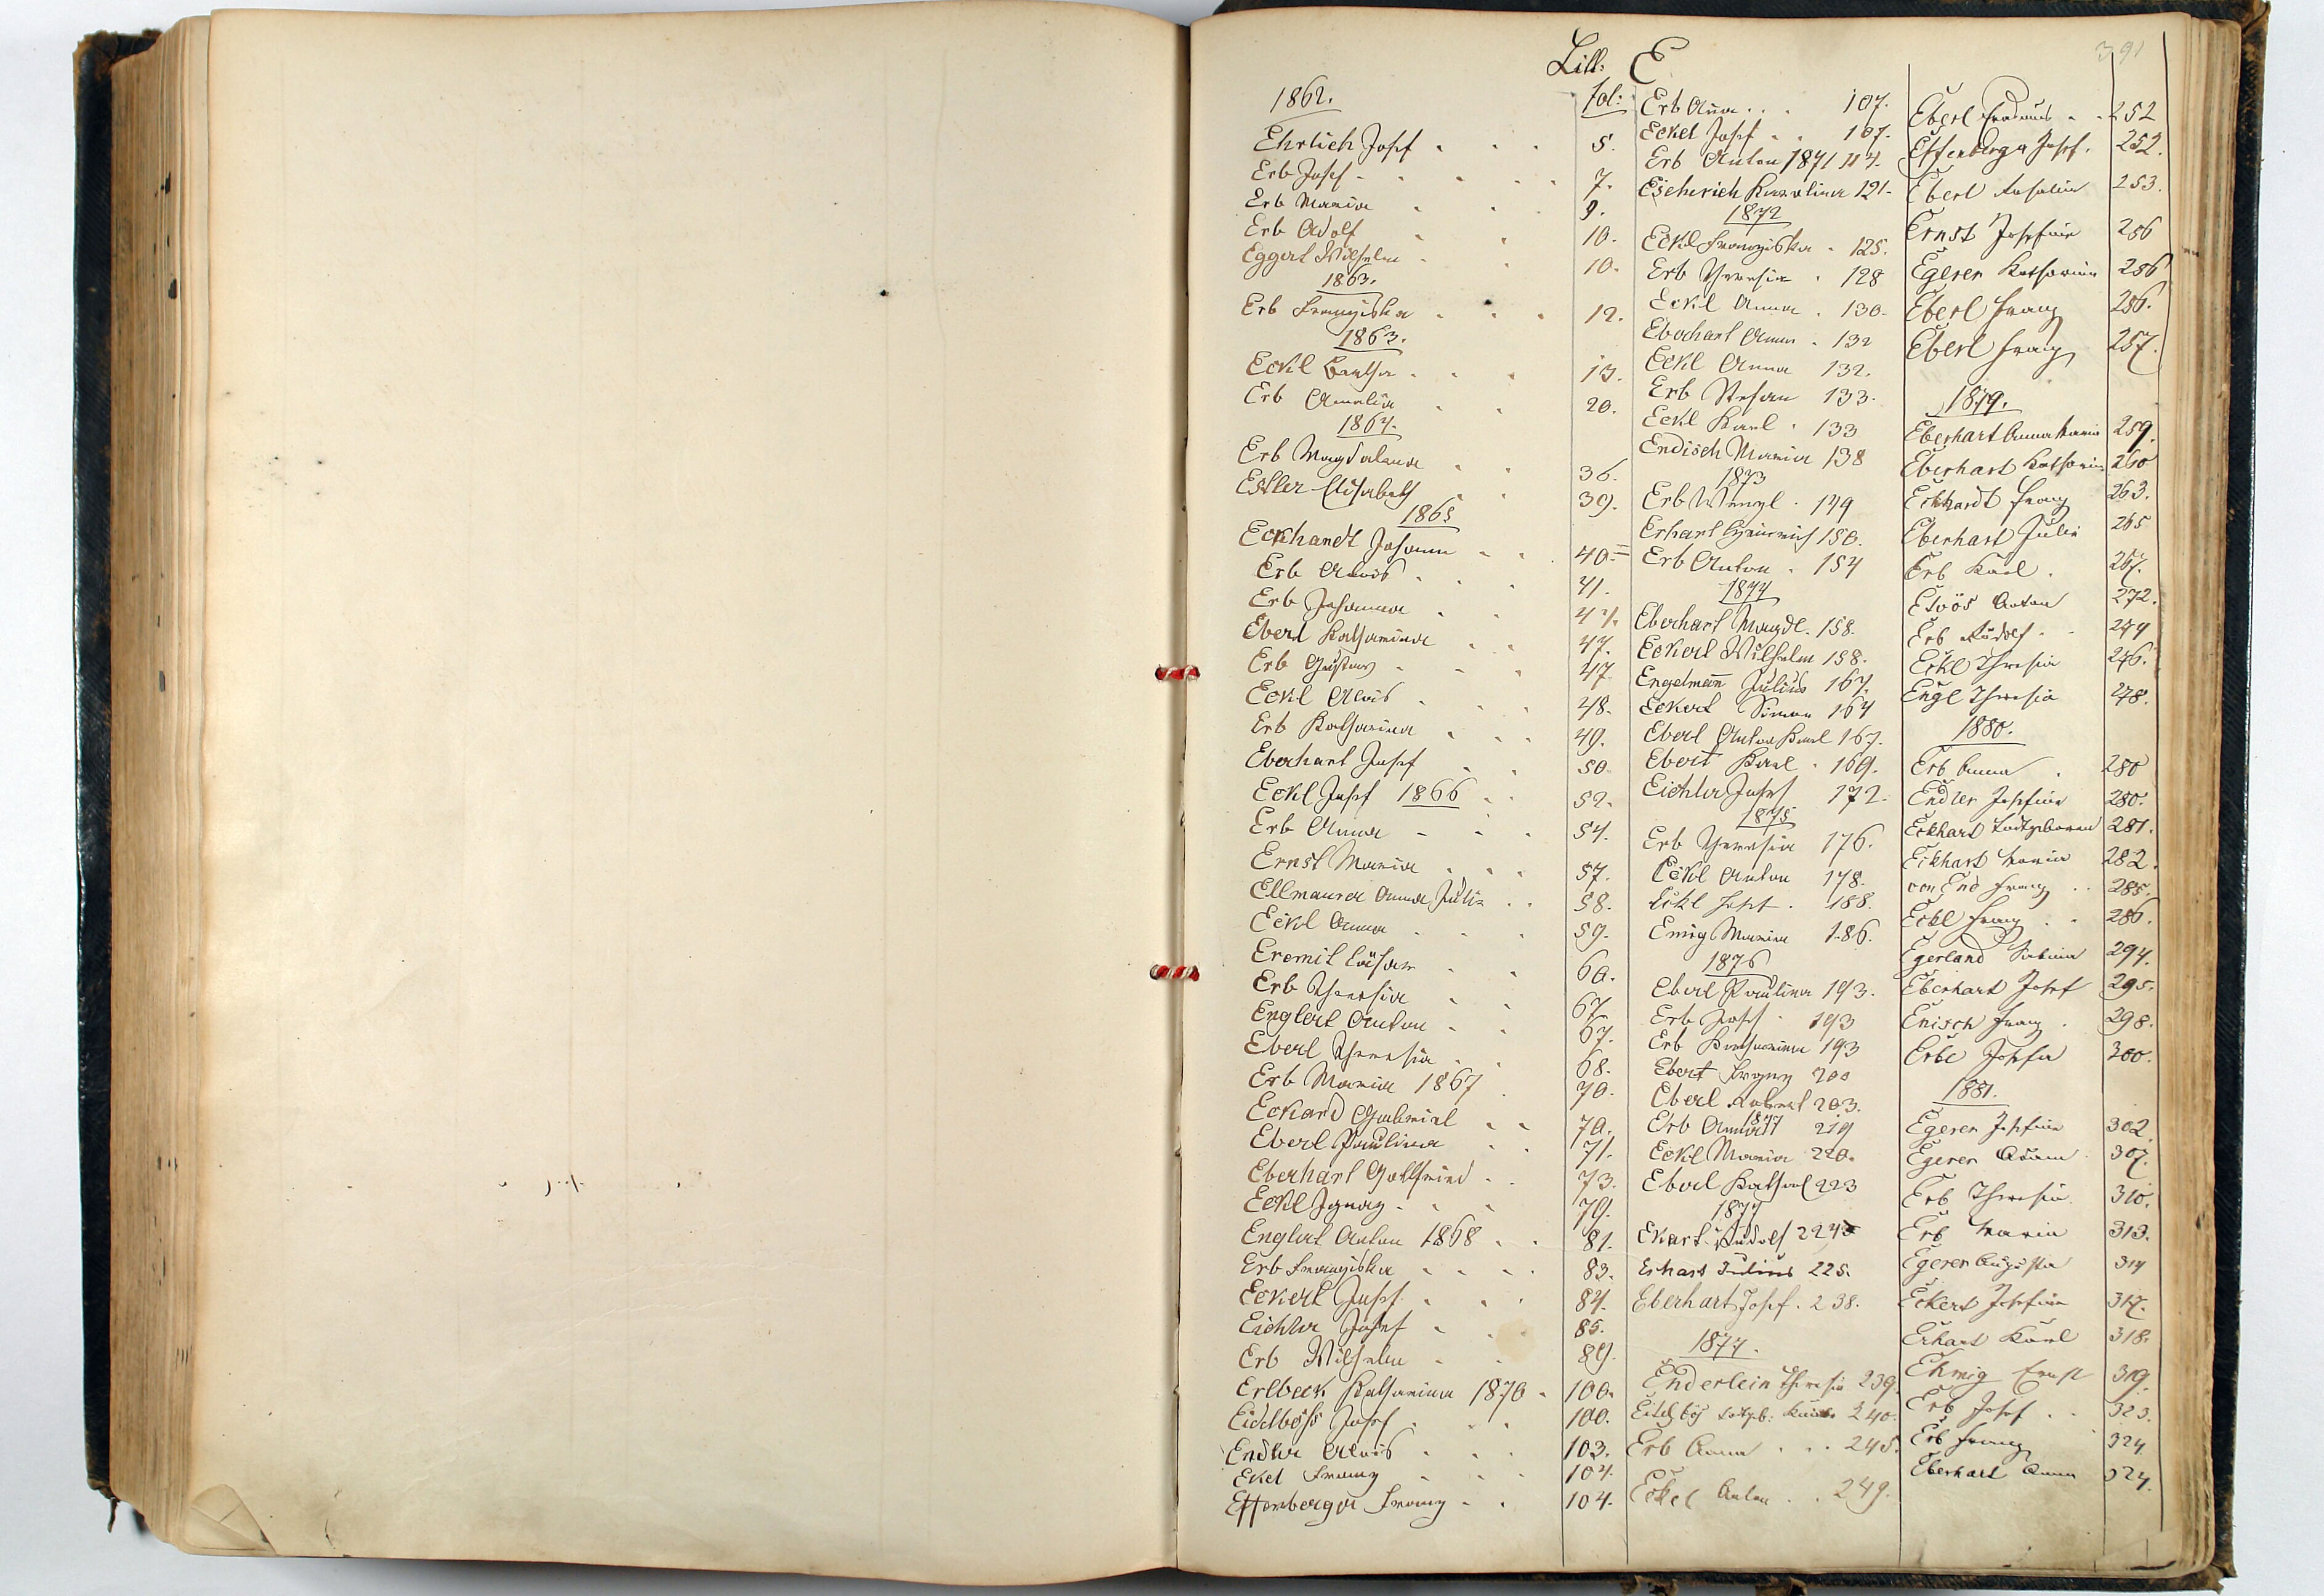 391
Litt: E
1862.
fol:
Ehrlich Josef 5.
Erb Josef 7.
Erb Maria 9.
Erb Adolf 10.
Eggert Wilhelm 10.
1863.
Erb Franziska 12.
1863.
Eckl Bertha 13.
Erb Amalia 20.
1864.
Erb Magdalena 36.
Estler Elisabeth 39.
1865
Eckhardt Johann 40.
Erb Alois 41.
Erb Johanna
Eberl Katharina 47.
Erb Gustav 47
Eckl Alois 48.
Erb Katharina 49.
Eberhart Josef 50
Eckl Josef 1866 52.
Erb Anna 54.
Ernst Maria 57.
Ellmaurer Anna Julia 58.
Eckl Anna 59.
Eremit Cäsar 60.
Erb Theresia 67
Englert Anton 67.
Eberl Theresia 68.
Erb Maria 1867 70.
Eckard Gabriel 70.
Eberl Paulina 71.
Eberhart Gottfried 73.
Eckl Ignaz 79.
Englert Anton 1868 81.
Erb Franziska 83.
Eckert Josef 84.
Eichler Josef 85.
Erb Wilhelm 89.
Erlbeck Katharina 1870 100.
Eichlböß Josef 100.
Endler Alois 103.
Ekel Franz 104.
Effenberger Franz 104.
Erb Anna 107.
Eckel Josef 107.
Erb Anton 1871 117.
Escherich Karolina 121.
1872
Eckl Franziska 125.
Erb Theresia 128
Eckl Anna 130.
Eberhart Anna 132
Eckl Anna 132.
Erb Stefan 133.
Eckl Karl 133
Endisch Maria 138
1873
Erb Wenzl 149
Erhart Heinrich 150.
Erb Anton 154
1874
Eberhart Magdl. 158.
Eckert Wilhelm 158.
Engelmann Julius 167.
Eckert Simon 164
Eberl Anton Karl 167.
Ebert Karl 169.
Eichler Josef 172.
1875
Erb Theresia 176.
Eckl Anton 178.
Eckl Josef 188.
Emig Maria 186.
1876
Eberl Paulina 193.
Erb Josef 193
Erb Katharina 193
Ebert Franz 200
Eberl Robert 203.
1877
Erb 219
Eckl Maria 220.
Eberl Kathar 223
1877
Ekart Rudolf 224
Erhart Julius 225.
Eberhart Josef. 238.
1877.
Enderlein Theresia 239.
todtgb. 240.
Erb Anna 245.
Eckel Anton 249.
Eberl 252
Effenberger Josef. 252.
Eberl Rosalia 253.
Ernst Josefine 256
Egerer Katharina 256
Eberl Franz 256.
Eberl Franz 257.
1879.
Eberhart Anna Maria 259.
Eberhart Katharina 260
Eckhardt Franz 263.
Eberhart Julie 265
Erb Karl 267.
Anton 272.
Erb Rudolf 274
Eckl Theresia 276.
Engl Theresia 278.
1880.
Erb Anna 280
Endler Josefine 280.
Eckhart todtgeboren 281.
Eckhart Maria 282.
von End Franz 285.
Eckl Franz 286.
Egerland Sabina 294.
Eberhart Josef 295.
Enisch Franz 298.
Erbe Josefa 300.
1881.
Egerer Josefine 302.
Egerer Adam 307.
Erb Theresia 310.
Erb Maria 313.
Egerer Augusta 314
Eckert Josefine 317.
Erhart Karl 318.
Ehmig Ernst 319.
Erb Josef 323.
Erb Franz 324
Eberhart Anna 324.